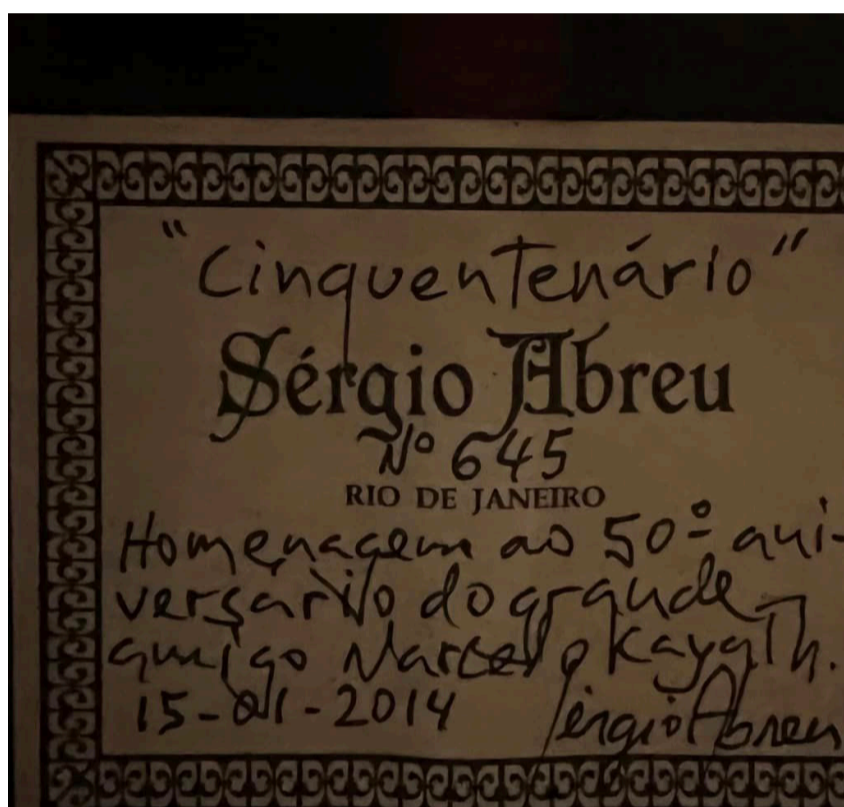 "Cinquentenário"
Sérgio Abreu
Nº 645
RIO DE JANEIRO
Homenagem ao 50º ani-
versário do grande
amigo Marcelo Kayath.
15-01-2014 Sérgio Abreu